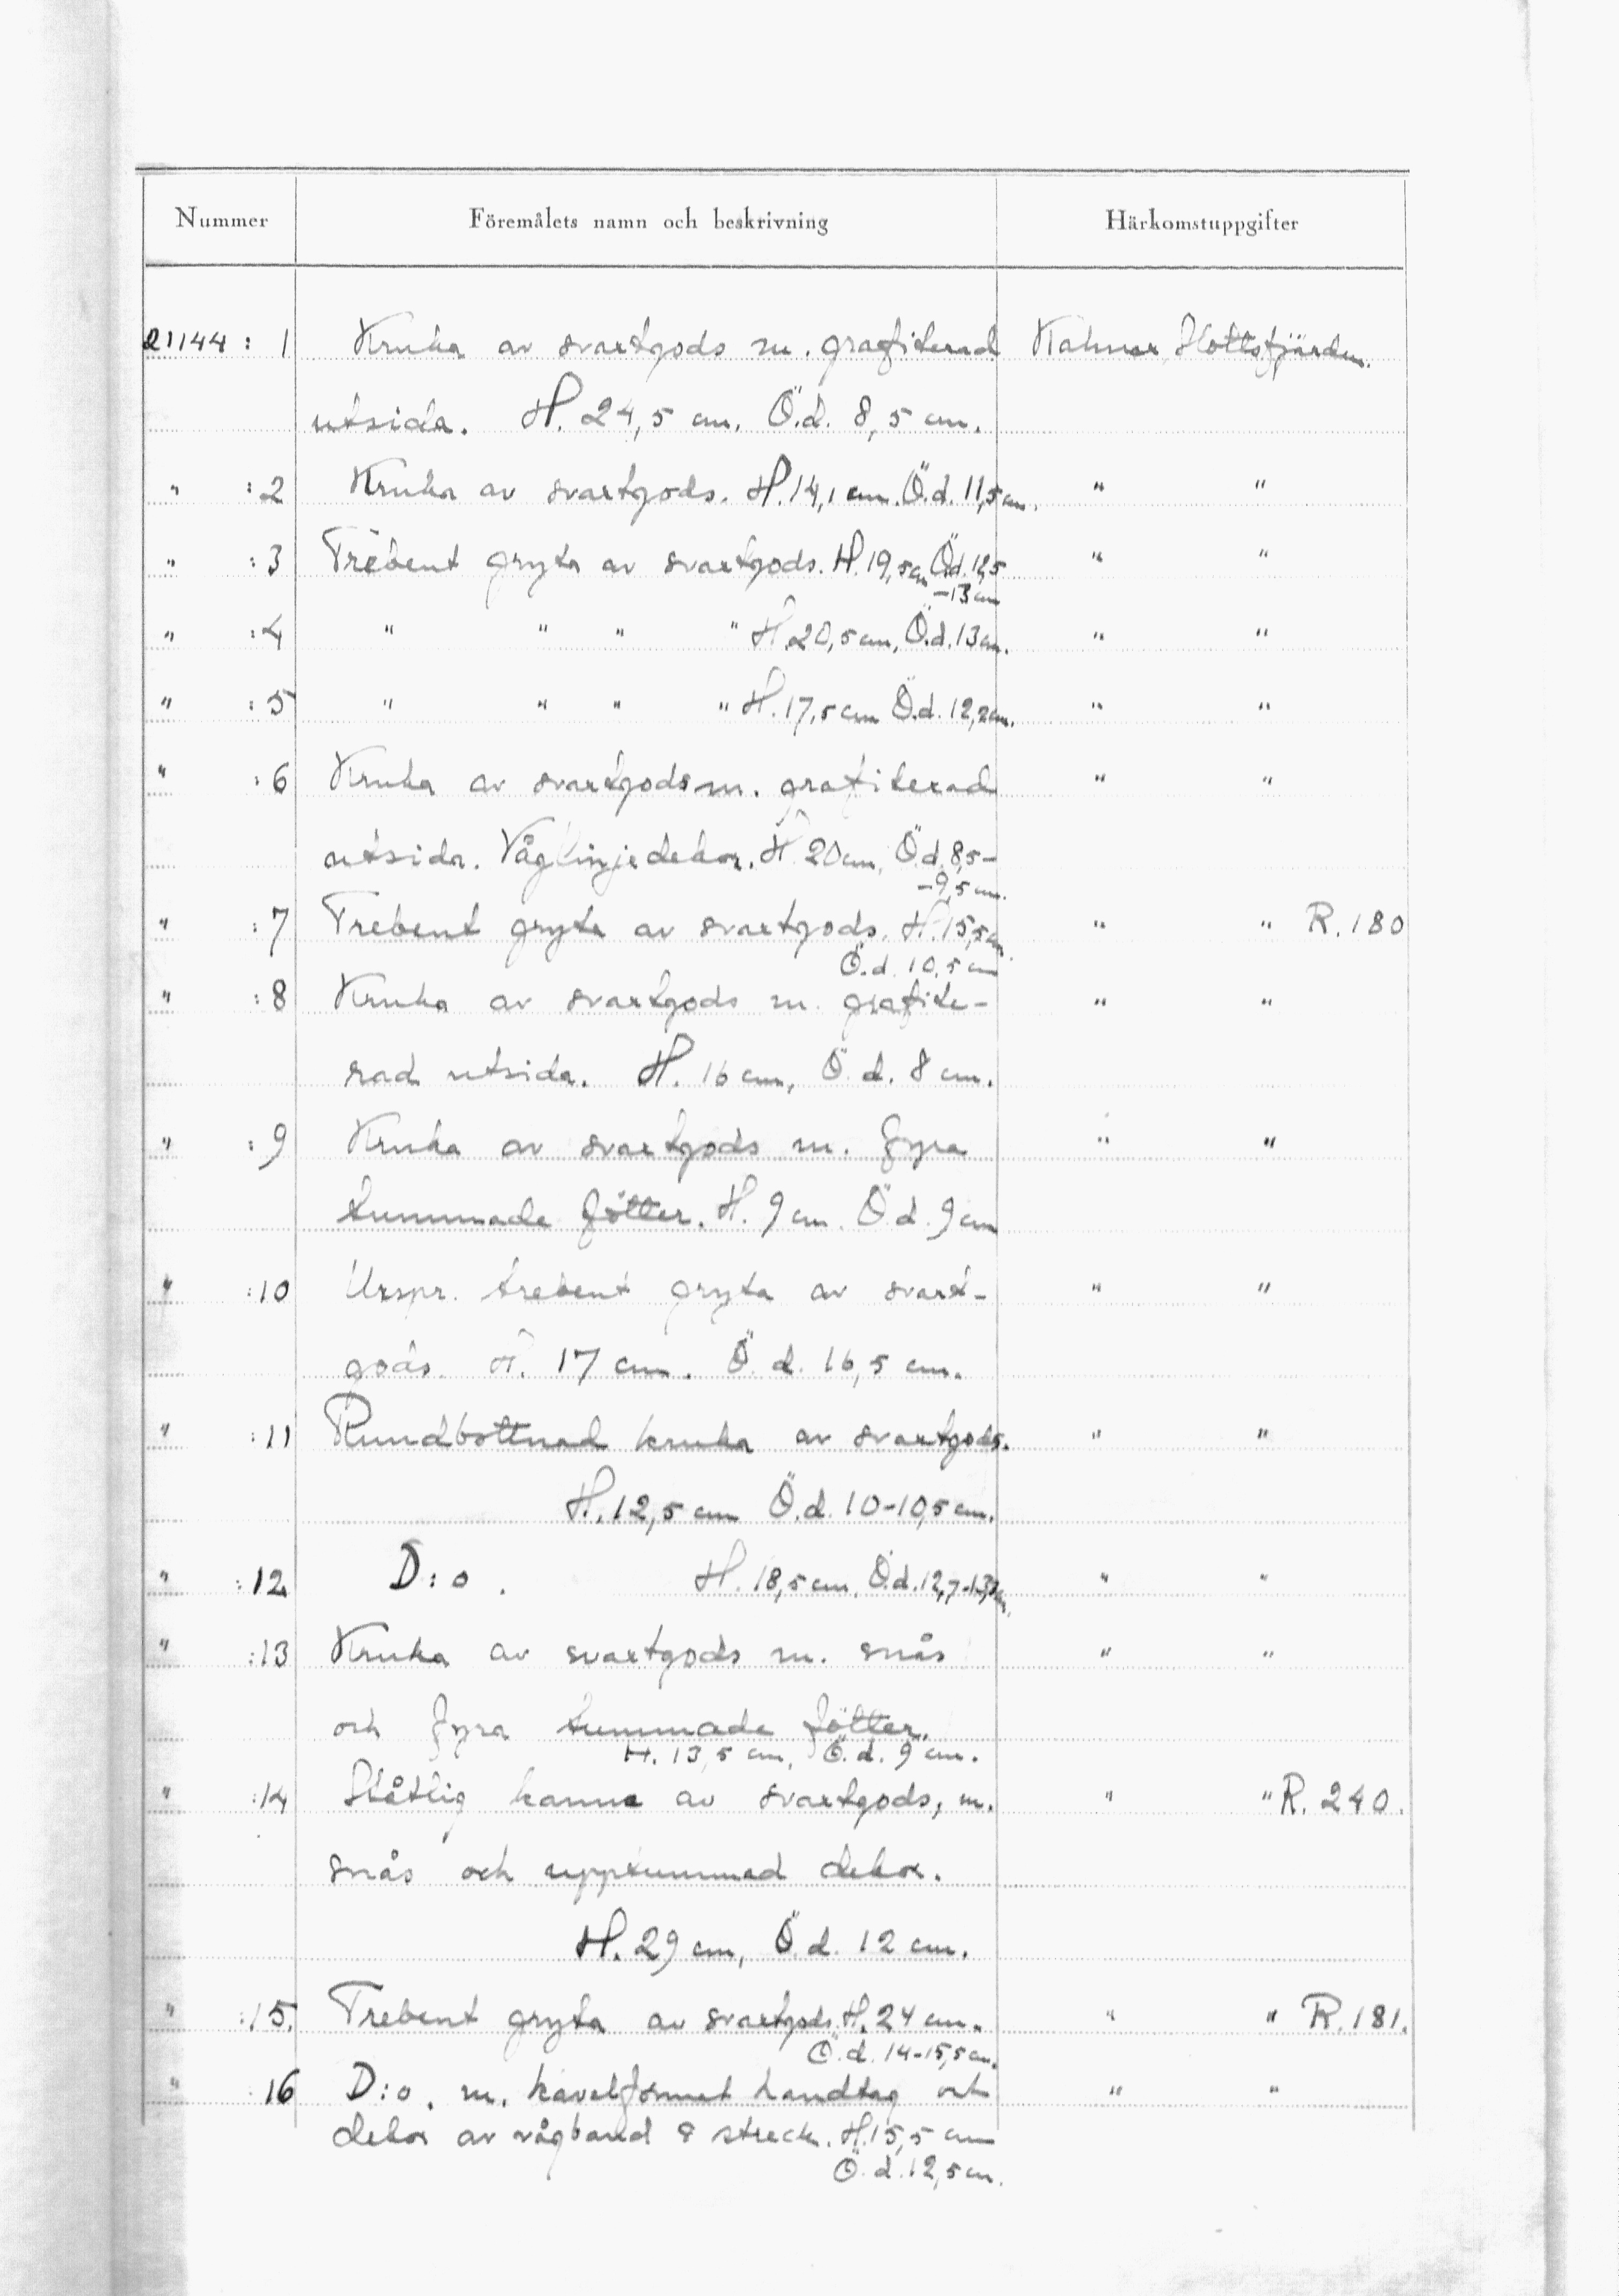 Nummer Föremålets namn och beskrivning Härkomstuppgifter
21144 : 1 Kruka av svartgods m. grafiterad Kalmar, Slottsfjärden.
utsida. H. 24,5 cm. Ö.d. 8,5 cm.
" :2 Kruka av svartgods. H. 14,1 cm. Ö.d. 11,5 cm. " "
" :3 Trebent gryta av svartgods. H. 19,5 cm Ö.d. 12,5 " "
-13 cm
" :4 " " " " H. 20,5 cm, Ö.d. 13 cm. " "
" :5 " " " " H. 17,5 cm Ö.d. 12,2 cm. " "
" :6 Kruka av svartgods m. grafiterad " "
utsida. Våglinjedekor. H 20 cm, Ö.d. 8,5-
-9,5 cm.
" :7 Trebent gryta av svartgods. H. 15,5 cm. " " R. 180
Ö.d. 10,5 cm
" :8 Kruka av svartgods m. grafite- " "
rad utsida. H. 16 cm, Ö.d. 8 cm.
" :9 Kruka av svartgods m. fyra " "
tummade fötter. H. 9 cm. Ö.d. 9 cm
" :10 Urspr. trebent gryta av svart- " "
gods. H. 17 cm. Ö.d. 16,5 cm.
" :11 Rundbottnad kruka av svartgods. " "
H. 12,5 cm Ö.d. 10-10,5 cm.
" :12 D:o. H. 18,5 cm, Ö.d. 12,7- " "
" :13 Kruka av svartgods m. snås " "
och fyra tummade fötter.
H. 13,5 cm, Ö.d. 9 cm.
" :14 Ståtlig kanna av svartgods, m. " " R. 240.
snås och upptummad dekor.
H. 29 cm, Ö.d. 12 cm.
" :15. Trebent gryta av svartgods. H. 24 cm. " " R. 181.
Ö.d. 14-15,5 cm.
" :16 D:o. m. kavelformat handtag och " "
dekor av vågband & streck. H. 15,5 cm
Ö.d. 12,5 cm.